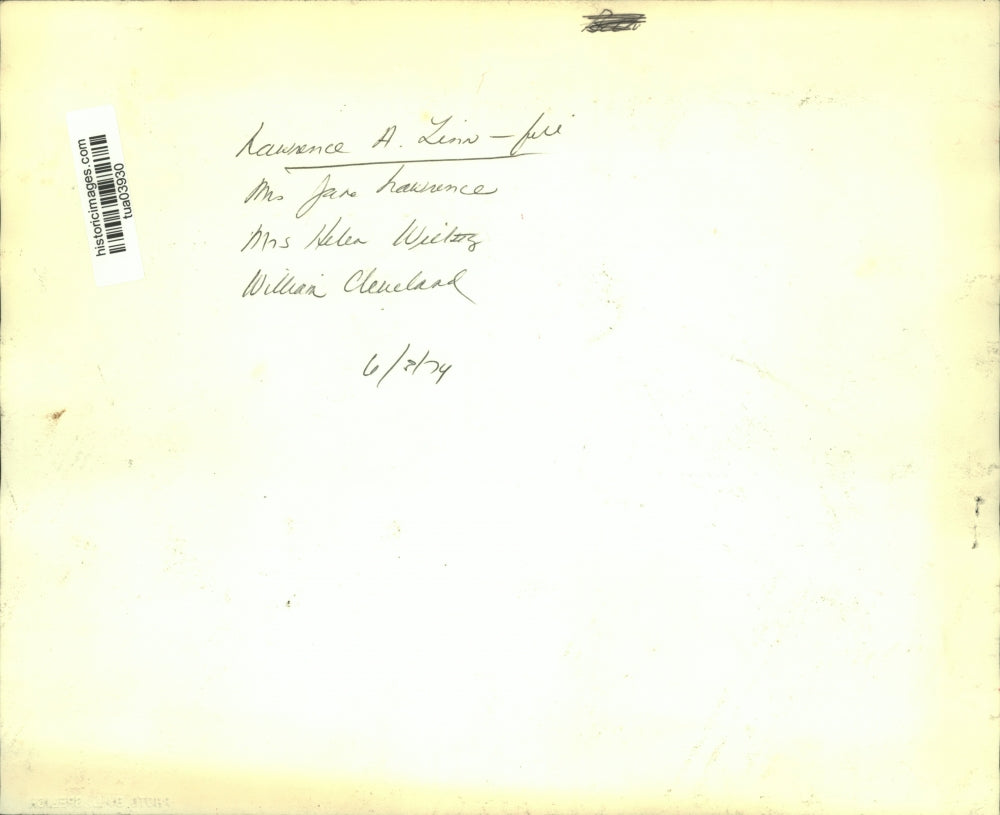 historicimages.com
tua03930
Lawrence A. Linn — file
Mrs Jane Lawrence
Mrs Helen
William Cleveland
6/3/74